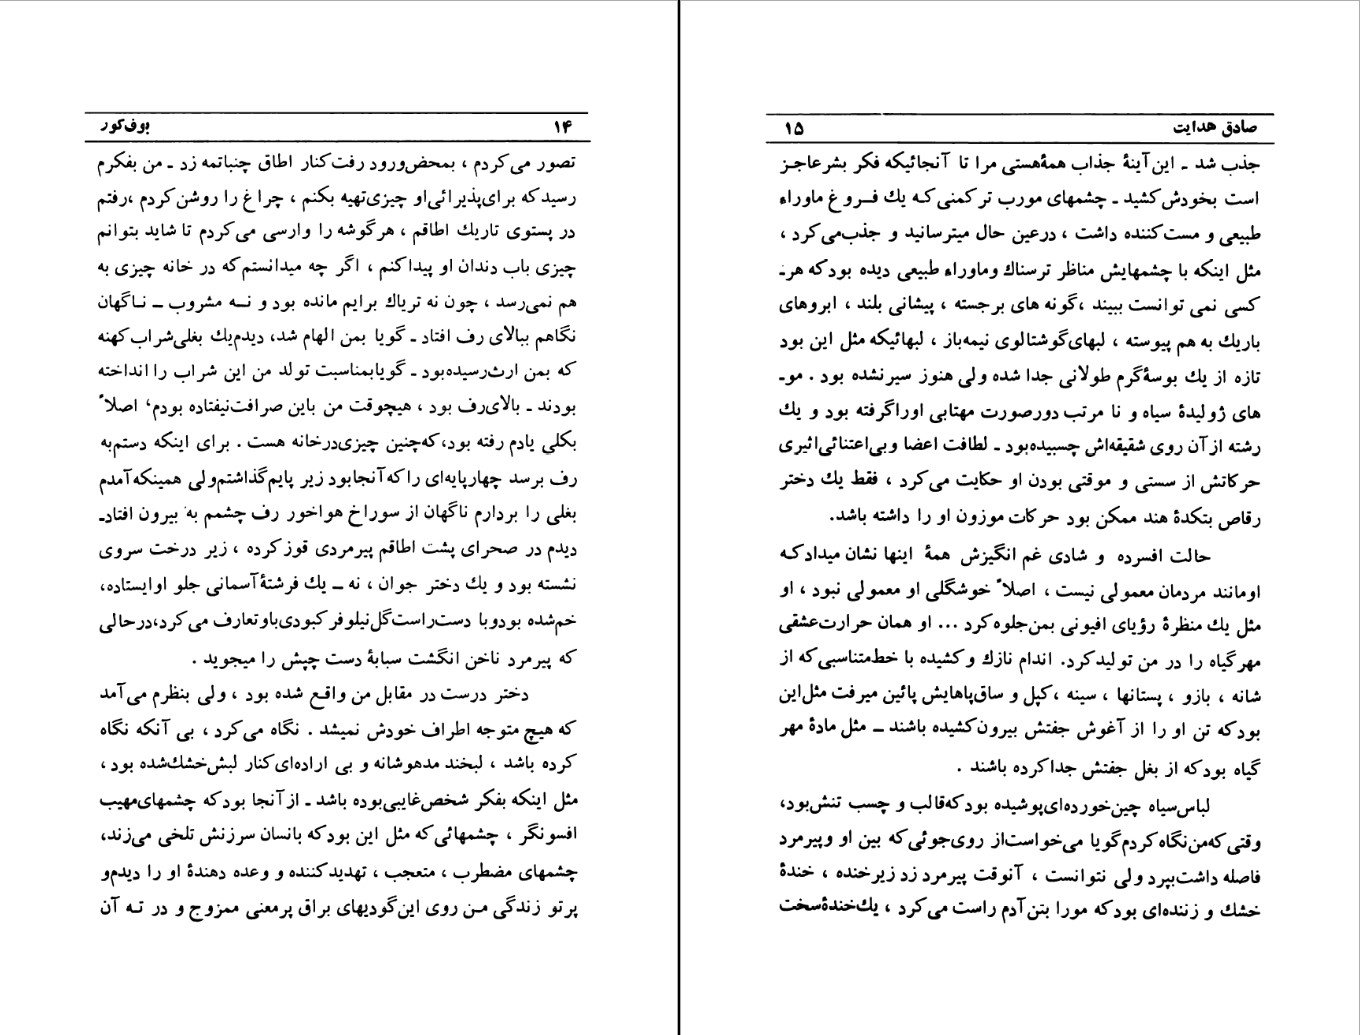 بوف‌کور ۱۴
تصور می‌کردم ، بمحض‌ورود رفت‌کنار اطاق چنباتمه زد ـ من بفکرم
رسید‌که برای‌پذیرائی‌او چیزی‌تهیه بکنم ، چراغ را روشن‌کردم ،رفتم
در پستوی تاریك اطاقم ، هرگوشه را وارسی می‌کردم تا شاید بتوانم
چیزی باب دندان او پیداکنم ، اگر چه میدانستم‌که در خانه چیزی به
هم نمی‌رسد ، چون نه تریاك برایم مانده بود و نـه مشروب ــ نـاگهان
نگاهم ببالای رف افتاد ـ گویا بمن الهام شد، دیدم‌یك بغلی‌شراب‌کهنه
که بمن ارث‌رسیده‌بود ـ گویابمناسبت تولد من این شراب را انداخته
بودند ـ بالای‌رف بود ، هیچوقت من باین صرافت‌نیفتاده بودم، اصلاً
بکلی یادم رفته بود،که‌چنین چیزی‌درخانه هست . برای اینکه دستم‌به
رف برسد چهارپایه‌ای راکه‌آنجابود زیر پایم‌گذاشتم‌ولی همینکه‌آمدم
بغلی را بردارم ناگهان از سوراخ هواخور رف چشمم به بیرون افتادـ
دیدم در صحرای پشت اطاقم پیرمردی قوزکرده ، زیر درخت سروی
نشسته بود و یك دختر جوان ، نه ــ یك فرشتهٔ‌آسمانی جلو اوایستاده،
خم‌شده بودوبا دست‌راست‌گل‌نیلوفرکبودی‌باوتعارف می‌کرد،درحالی
که پیرمرد ناخن انگشت سبابهٔ دست چپش را میجوید .
دختر درست در مقابل من واقـع شده بود ، ولی بنظرم می‌آمد
که هیچ متوجه اطراف خودش نمیشد . نگاه می‌کرد ، بی آنکه نگاه
کرده باشد ، لبخند مدهوشانه و بی اراده‌ای‌کنار لبش‌خشك‌شده بود ،
مثل اینکه بفکر شخص‌غایبی‌بوده باشد ـ ازآنجا بودکه چشمهای‌مهیب
افسونگر ، چشمهائی‌که مثل این بودکه بانسان سرزنش تلخی می‌زند،
چشمهای مضطرب ، متعجب ، تهدیدکننده و وعده دهندهٔ او را دیدم‌و
پرتو زندگی مـن روی این‌گودیهای براق پرمعنی ممزوج و در تـه آن
صادق هدایت ۱۵
جذب شد ـ این‌آینهٔ جذاب همهٔ‌هستی مرا تا آنجائیکه فکر بشرعاجـز
است بخودش‌کشید ـ چشمهای مورب ترکمنی‌کـه یك فـروغ ماوراء
طبیعی و مست‌کننده داشت ، درعین حال میترسانید و جذب‌می‌کرد ،
مثل اینکه با چشمهایش مناظر ترسناك وماوراء طبیعی دیده بودکه هرـ
کسی نمی توانست ببیند ،گونه های برجسته ، پیشانی بلند ، ابروهای
باریك به هم پیوسته ، لبهای‌گوشتالوی نیمه‌باز ، لبهائیکه مثل این بود
تازه از یك بوسهٔ‌گرم طولانی جدا شده ولی هنوز سیرنشده بود . موـ
های ژولیدهٔ سیاه و نا مرتب دورصورت مهتابی اوراگرفته بود و یك
رشته ازآن روی شقیقه‌اش چسبیده‌بود ـ لطافت اعضا وبی‌اعتنائی‌اثیری
حرکاتش از سستی و موقتی بودن او حکایت می‌کرد ، فقط یك دختر
رقاص بتکدهٔ هند ممکن بود حرکات موزون او را داشته باشد.
حالت افسرده و شادی غم انگیزش همهٔ اینها نشان میدادکـه
اومانند مردمان معمولی نیست ، اصلاً خوشگلی او معمولی نبود ، او
مثل یك منظرهٔ رؤیای افیونی بمن‌جلوه‌کرد ... او همان حرارت‌عشقی
مهرگیاه را در من تولیدکرد. اندام نازك وکشیده با خط‌متناسبی‌که از
شانه ، بازو ، پستانها ، سینه ،کپل و ساق‌پاهایش پائین میرفت مثل‌این
بودکه تن او را از آغوش جفتش بیرون‌کشیده باشند ــ مثل مادهٔ مهر
گیاه بودکه از بغل جفتش جداکرده باشند .
لباس‌سیاه چین‌خورده‌ای‌پوشیده بودکه‌قالب و چسب تنش‌بود،
وقتی‌که‌من‌نگاه‌کردم‌گویا می‌خواست‌از روی‌جوئی‌که بین او وپیرمرد
فاصله داشت‌بپرد ولی نتوانست ، آنوقت پیرمرد زد زیرخنده ، خندهٔ
خشك و زننده‌ای بودکه مورا بتن‌آدم راست می‌کرد ، یك‌خندهٔ‌سخت